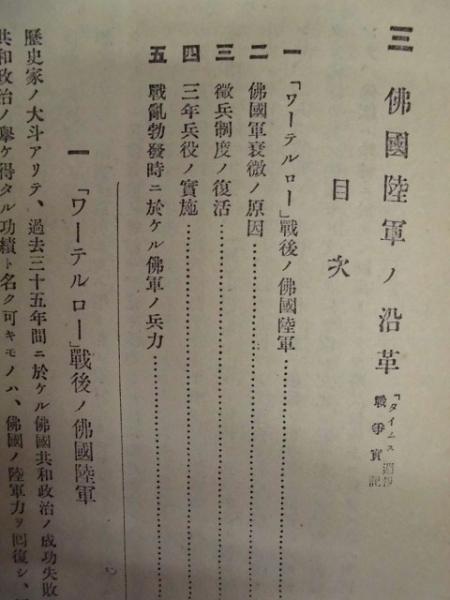 三 佛國陸軍ノ沿革
「タイムス週報
戰爭實記
目次
一 「ワーテルロー」戰後ノ佛國陸軍
二 佛國軍衰微ノ原因
三 徵兵制度ノ復活
四 三年兵役ノ實施
五 戰亂勃發時ニ於ケル佛軍ノ兵力
一 「ワーテルロー」戰後ノ佛國陸軍
歷史家ノ大斗アリテ、過去三十五年間ニ於ケル佛國共和政治ノ成功失敗
共和政治ノ擧ケ得タル功績ト名ク可キモノハ、佛國ノ陸軍力ヲ回復シ、